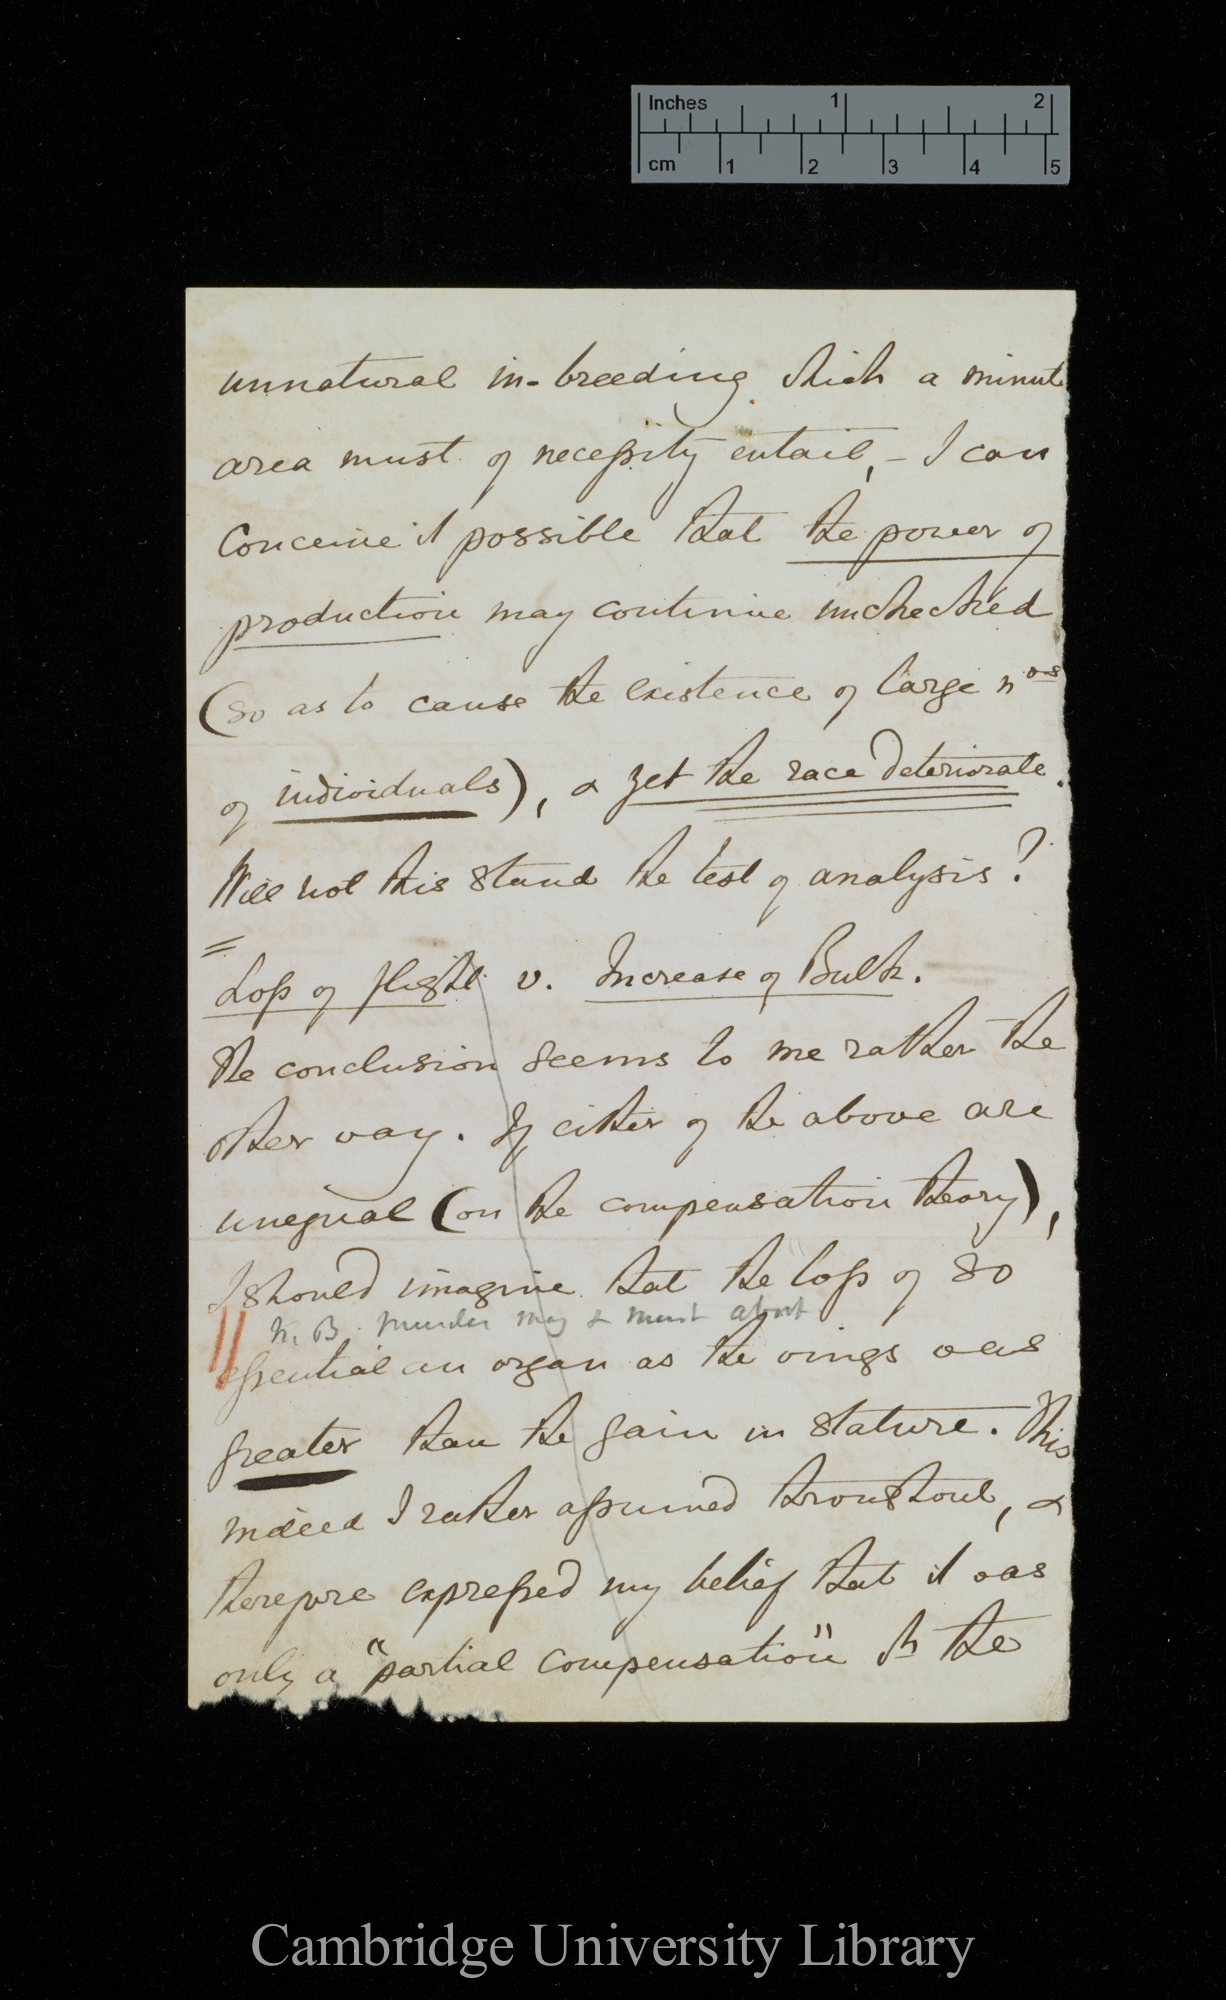 Inches 1 2
cm 1 2 3 4 5
unnatural in-breeding which a minute
area must of necessity entail, – I can
conceive it possible that the power of
production may continue unchecked
(so as to cause the existence of large nos
of individuals), & yet the race deteriorate.
Will not this stand the test of analysis?
=
Loss of flight v. Increase of Bulk.
The conclusion seems to me rather the
other way. If either of the above are
unequal (on the compensation theory),
I should imagine that the loss of so
N. B. murder may & must
essential an organ as the wings was
greater than the gain in stature. This
indeed I rather assumed throughout, &
therefore expressed my belief that it was
only a "partial compensation" wh the
Cambridge University Library